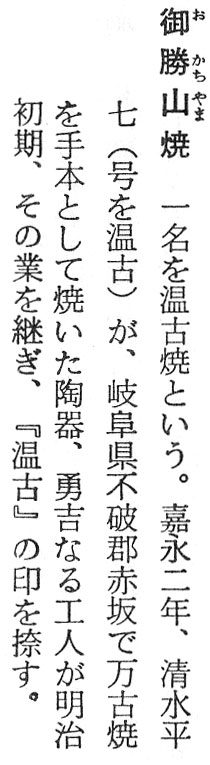 御勝山焼　一名を温古焼という。嘉永二年、清水平
七（号を温古）が、岐阜県不破郡赤坂で万古焼
を手本として焼いた陶器、勇吉なる工人が明治
初期、その業を継ぎ、『温古』の印を捺す。